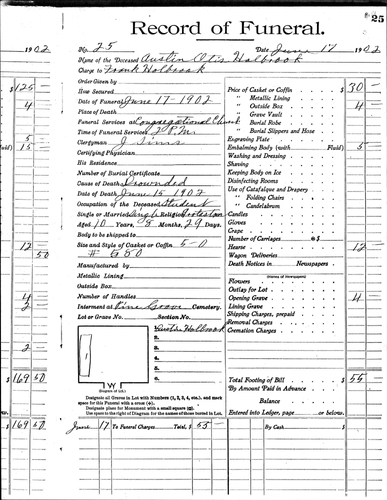 25
Record of Funeral.
1902
No. 25
Date June 17 1902
Name of the Deceased Austin Otis Holbrook
Charge to Frank Holbrook
Order Given by
How Secured
Date of Funeral June 17-1902
Place of Death
Funeral Services at Congregational Church
Time of Funeral Services 2 P.M.
Clergyman J Sims
Certifying Physician
His Residence
Number of Burial Certificate
Cause of Death Drownded
Date of Death June 15 1902
Occupation of the Deceased Student
Single or Married Single Religion Protestant
Aged 10 Years, 5 Months, 29 Days.
Body to be shipped to
Size and Style of Casket or Coffin 5-0
Manufactured by
Metallic Lining
Outside Box
Number of Handles
Interment at Pine Grove Cemetery.
Lot or Grave No. Section No.
Austin Holbrook
2.
3.
4.
5.
6.
W
(Diagram of Lot.)
Designate all Graves in Lot with Numbers (1, 2, 3, 4, etc.), and mark
space for this Funeral with a cross (+).
Designate place for Monument with a small square (□).
Use space to the right of Diagram for the names of those buried in Lot.
Price of Casket or Coffin $ 30
" Metallic Lining
" Outside Box 4
" Grave Vault
" Burial Robe
" Burial Slippers and Hose
Engraving Plate
Embalming Body (with Fluid) 5
Washing and Dressing
Shaving
Keeping Body on Ice
Disinfecting Rooms
Use of Catafalque and Drapery
" Folding Chairs
" Candelabrum
Candles
Gloves
Crape
Number of Carriages @ $
Hearse 12
Wagon Deliveries
Death Notices in Newspapers
(Names of Newspapers)
Flowers
Outlay for Lot
Opening Grave 4
Lining Grave
Shipping Charges, prepaid
Removal Charges
Cremation Charges
Total Footing of Bill $ 55
By Amount Paid in Advance
Balance
Entered into Ledger, page or below.
June 17 To Funeral Charges Total, $ 55
By Cash $
$ 125
4
5
Fluid) 15
12
50
4
2
2
$ 169 50
$ 169 50